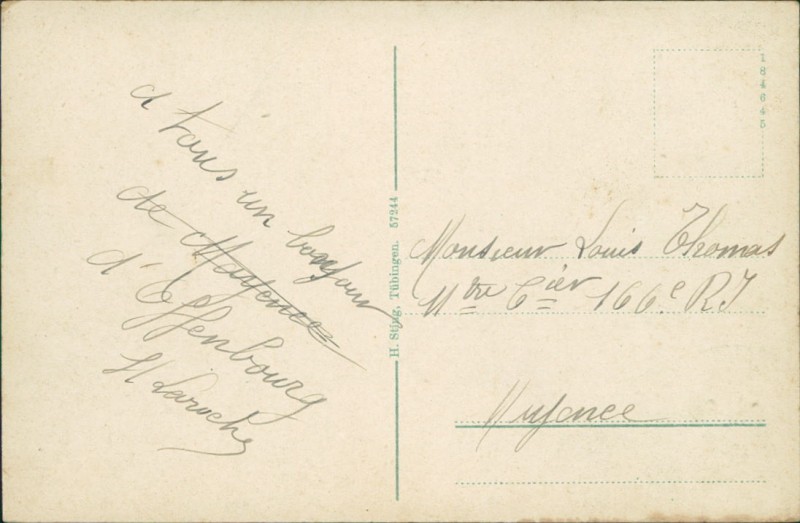 a tous un bonjour
de Mayence
d'Offenbourg
H Laroche
H. Sting, Tübingen. 57244
184645
Monsieur Louis Thomas
Mtre Cier 166e RI
Mayence